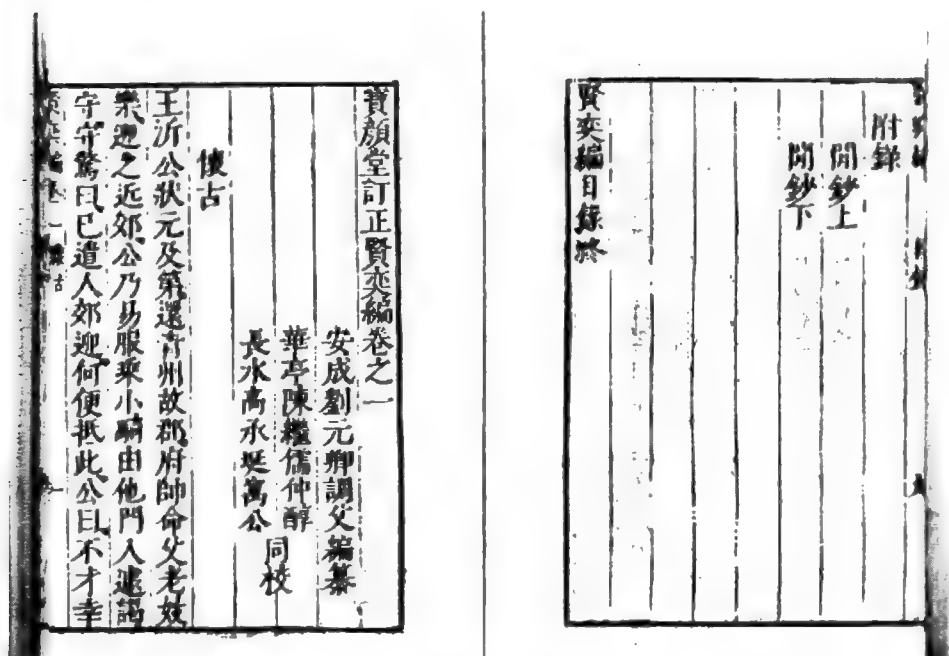 附錄
閒鈔上
閒鈔下
賢奕編目錄終
寶顏堂訂正賢奕編卷之一
安成劉元卿調父編纂
華亭陳繼儒仲醇
長水高承埏寓公
同校
懷古
王沂公狀元及第還青州故郡府帥命父老妓
樂迎之近郊公乃易服乘小騎由他門入遽謁
守守驚曰已遣人郊迎何便抵此公曰不才幸